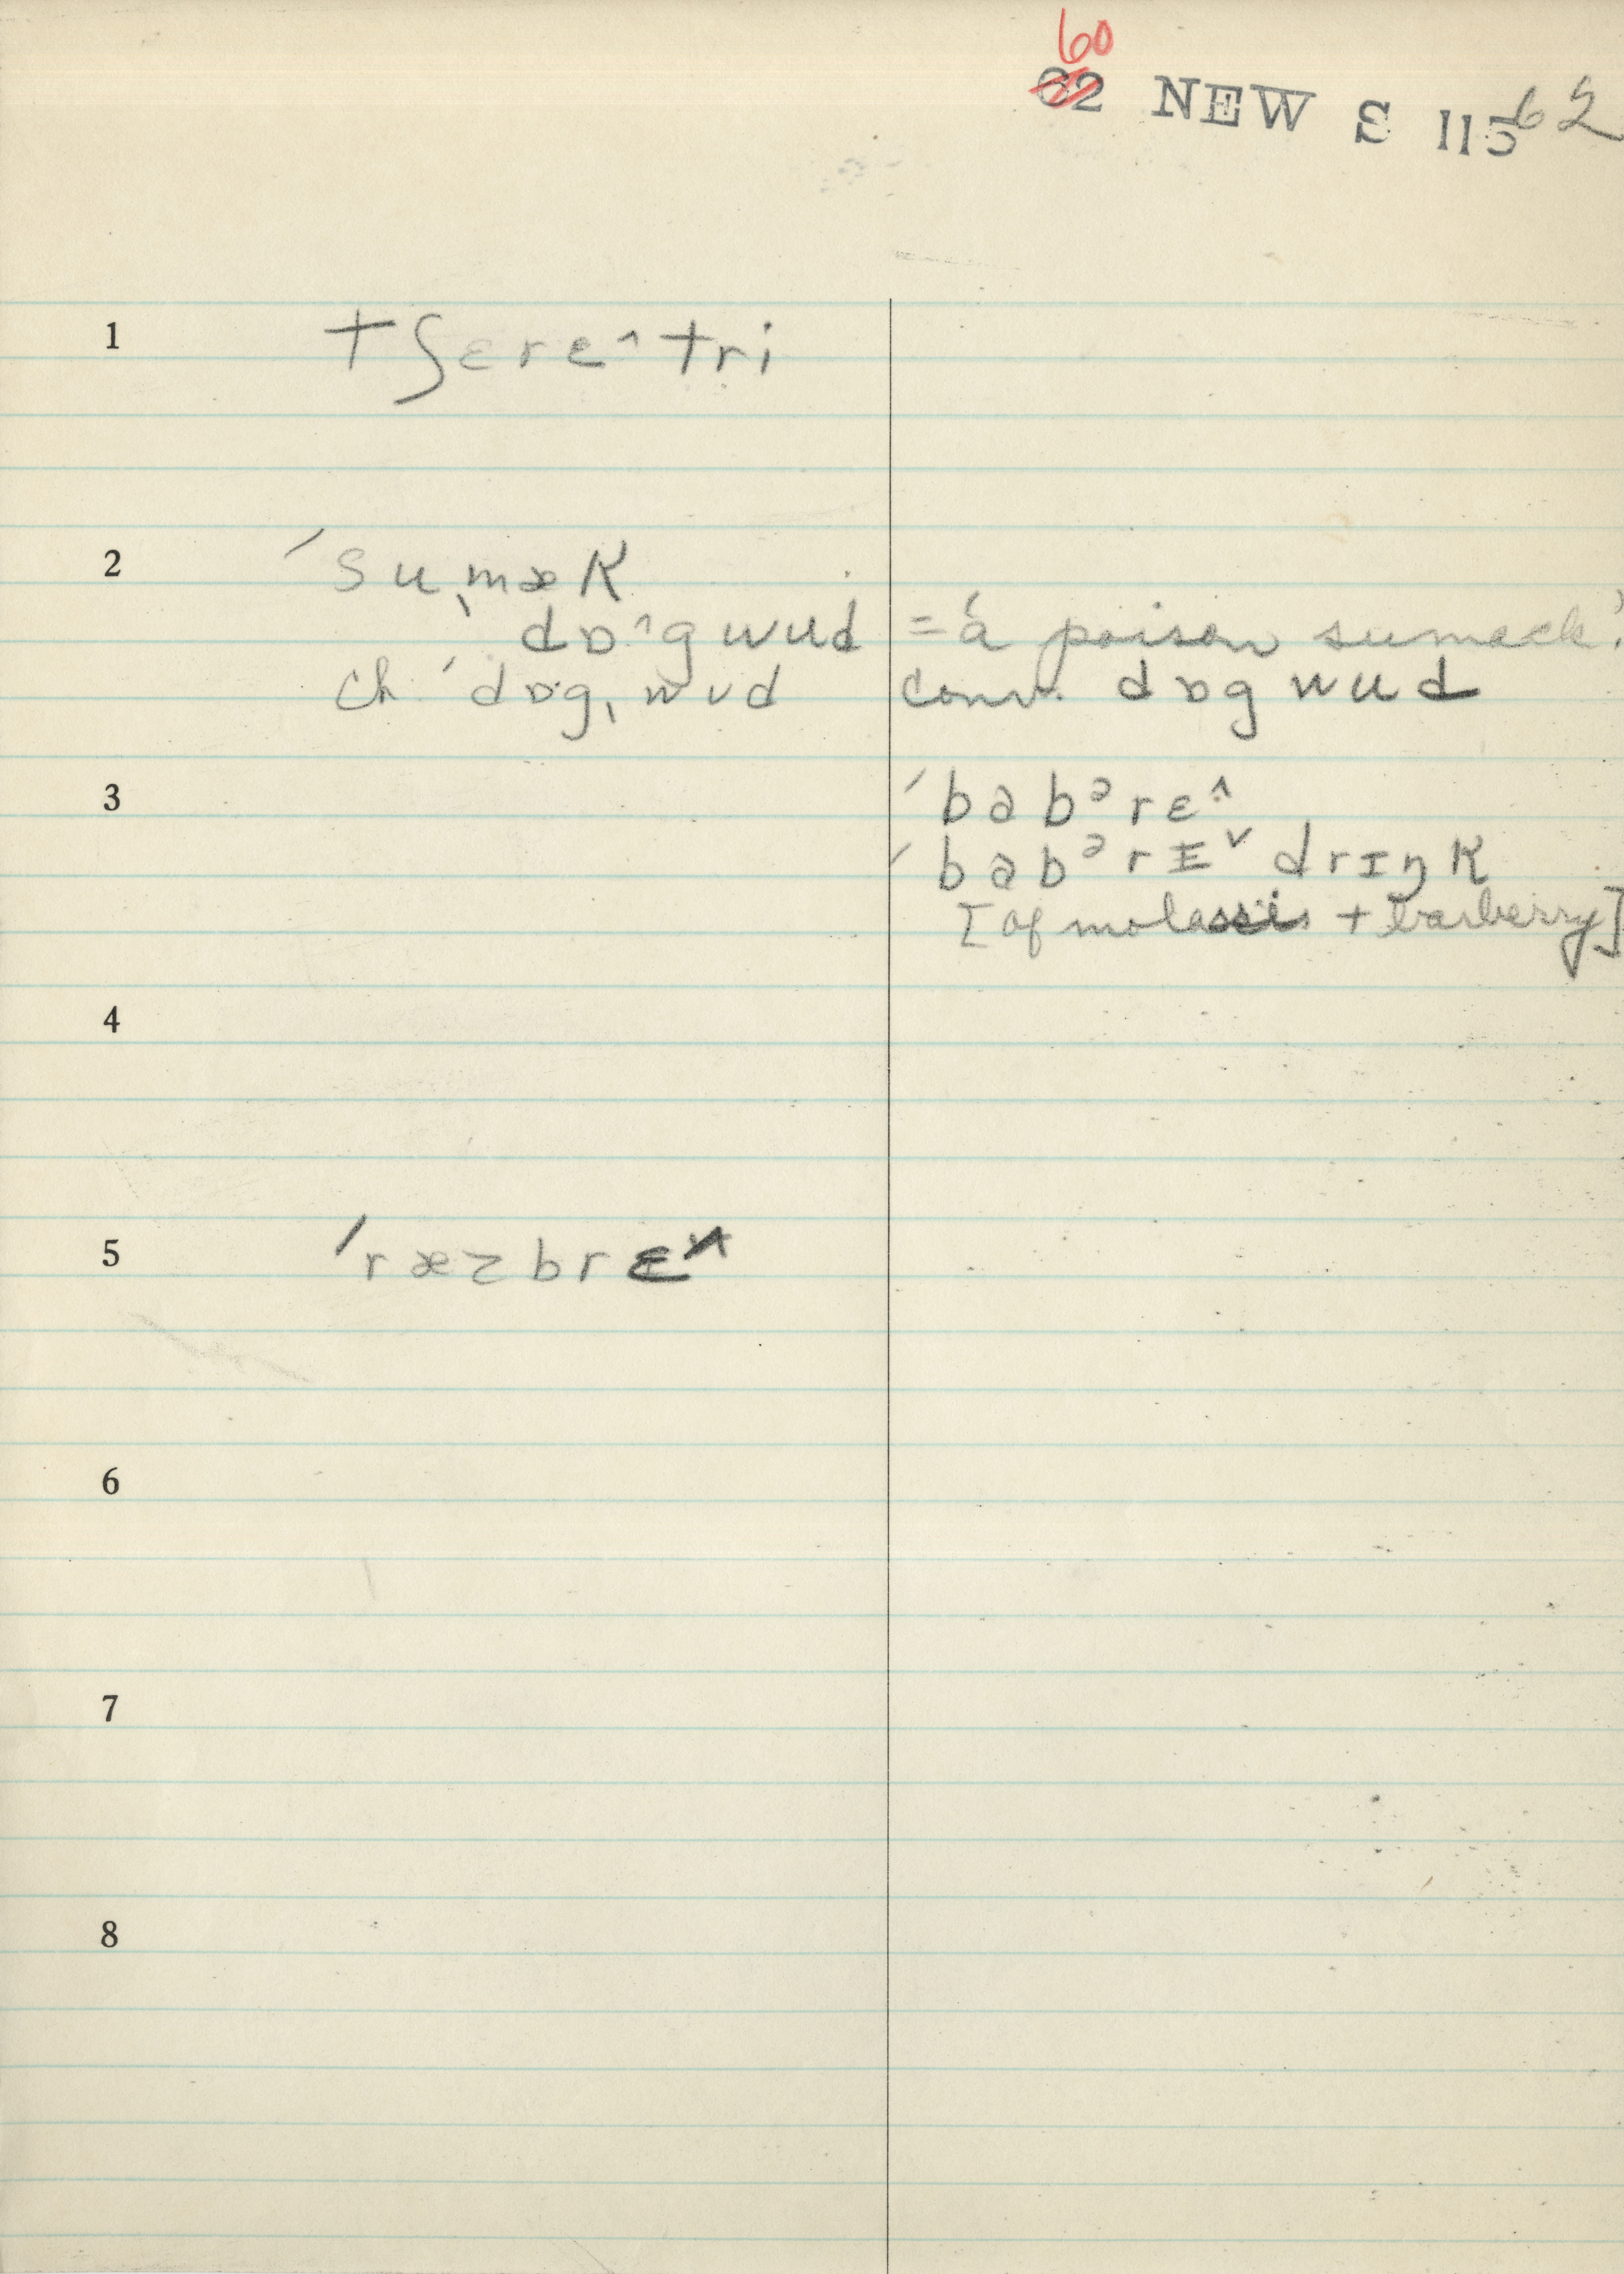 60
62 NEW S 115 62
1 tʃɛrɛ^tri
2 ˈsuˌmæk
dɒ^gwud = 'a poison sumack.'
ch. ˈdɒgˌwud conv. dɒgwud
3 ˈbabᵊrɛ^
ˈbabᵊrɪˇ drɪŋk
[of molasses + barberry]
4
5 ˈræzbrɛ^
6
7
8